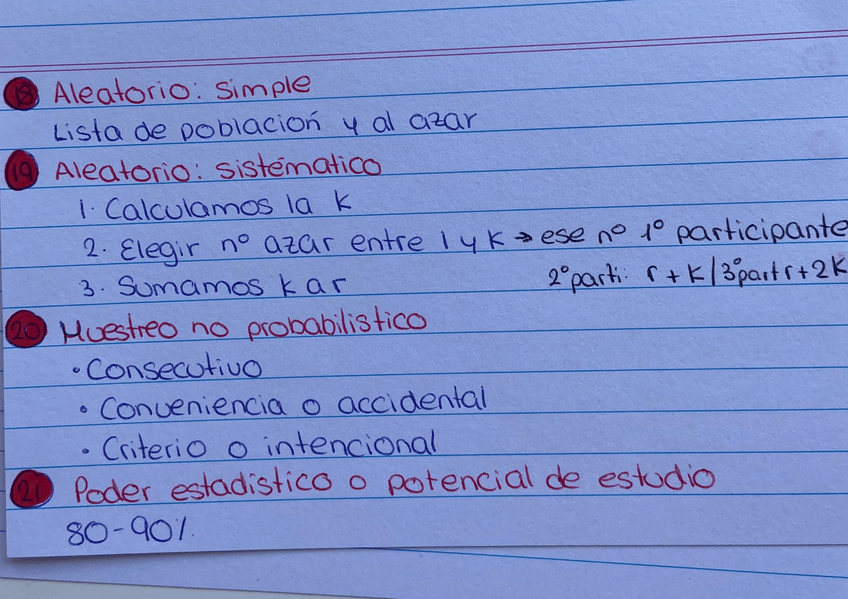 18 Aleatorio: simple
Lista de población y al azar
19 Aleatorio: sistématico
1. Calculamos la k
2. Elegir nº azar entre 1 y k → ese nº 1º participante
3. Sumamos k a r 2º parti: r + k / 3º part r + 2k
20 Muestreo no probabilistico
• Consecutivo
• Conveniencia o accidental
• Criterio o intencional
21 Poder estadistico o potencial de estudio
80-90%.